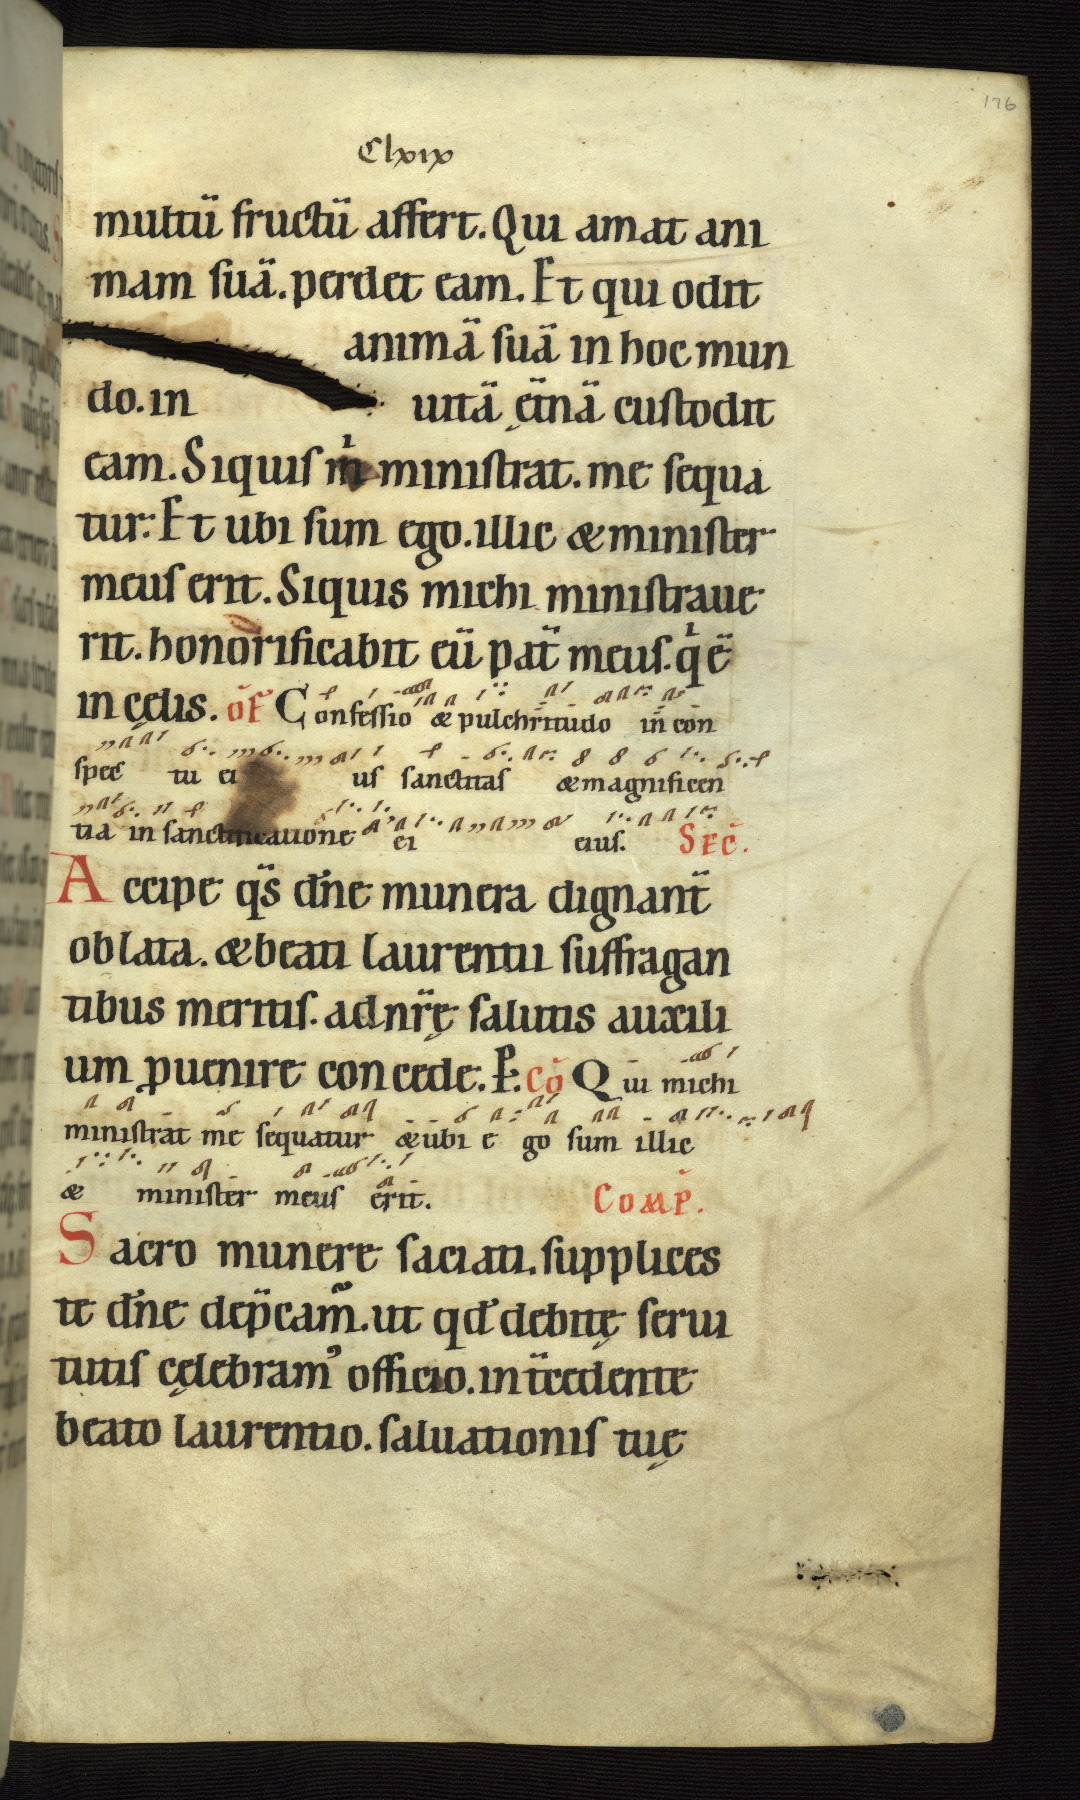 176
Clxix
multū fructū affert. Qui amat ani
mam suā. perdet eam. Et qui odit
animā suā in hoc mun
do. in uitā ęt̄nā custodit
eam. Siquis m̍ ministrat. me sequa
tur: Et ubi sum ego. illic & minister
meus erit. Siquis michi ministraue
rit. honorificabit eū pat̄ meus. q̍ ē
in cęlis. of̄ Confessio & pulchritudo in con
spec tu ei us sanctitas & magnificen
tia in sanctificatione ei eius. Sec̄.
Accipe q̄s dn̄e munera dignant̄
oblata. & beati laurentii suffragan
tibus meritis. ad nr̄ę salutis auxili
um ꝓuenire concede. P̄. co̅ Qui michi
ministrat me sequatur & ubi e go sum illic
& minister meus erit. Comp̄.
Sacro munere saciati. supplices
te dn̄e dep̄cam̄. ut qd̄ debitę serui
tutis cęlebramꝰ officio. int̄cedente
beato laurentio. saluationis tuę